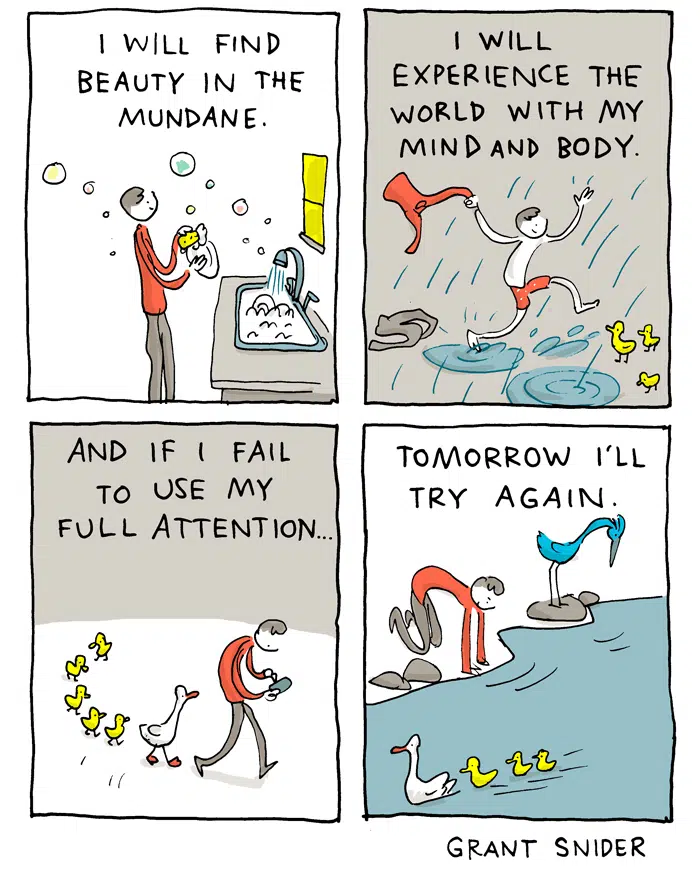 I WILL FIND
BEAUTY IN THE
MUNDANE.
I WILL
EXPERIENCE THE
WORLD WITH MY
MIND AND BODY.
AND IF I FAIL
TO USE MY
FULL ATTENTION...
TOMORROW I'LL
TRY AGAIN.
GRANT SNIDER